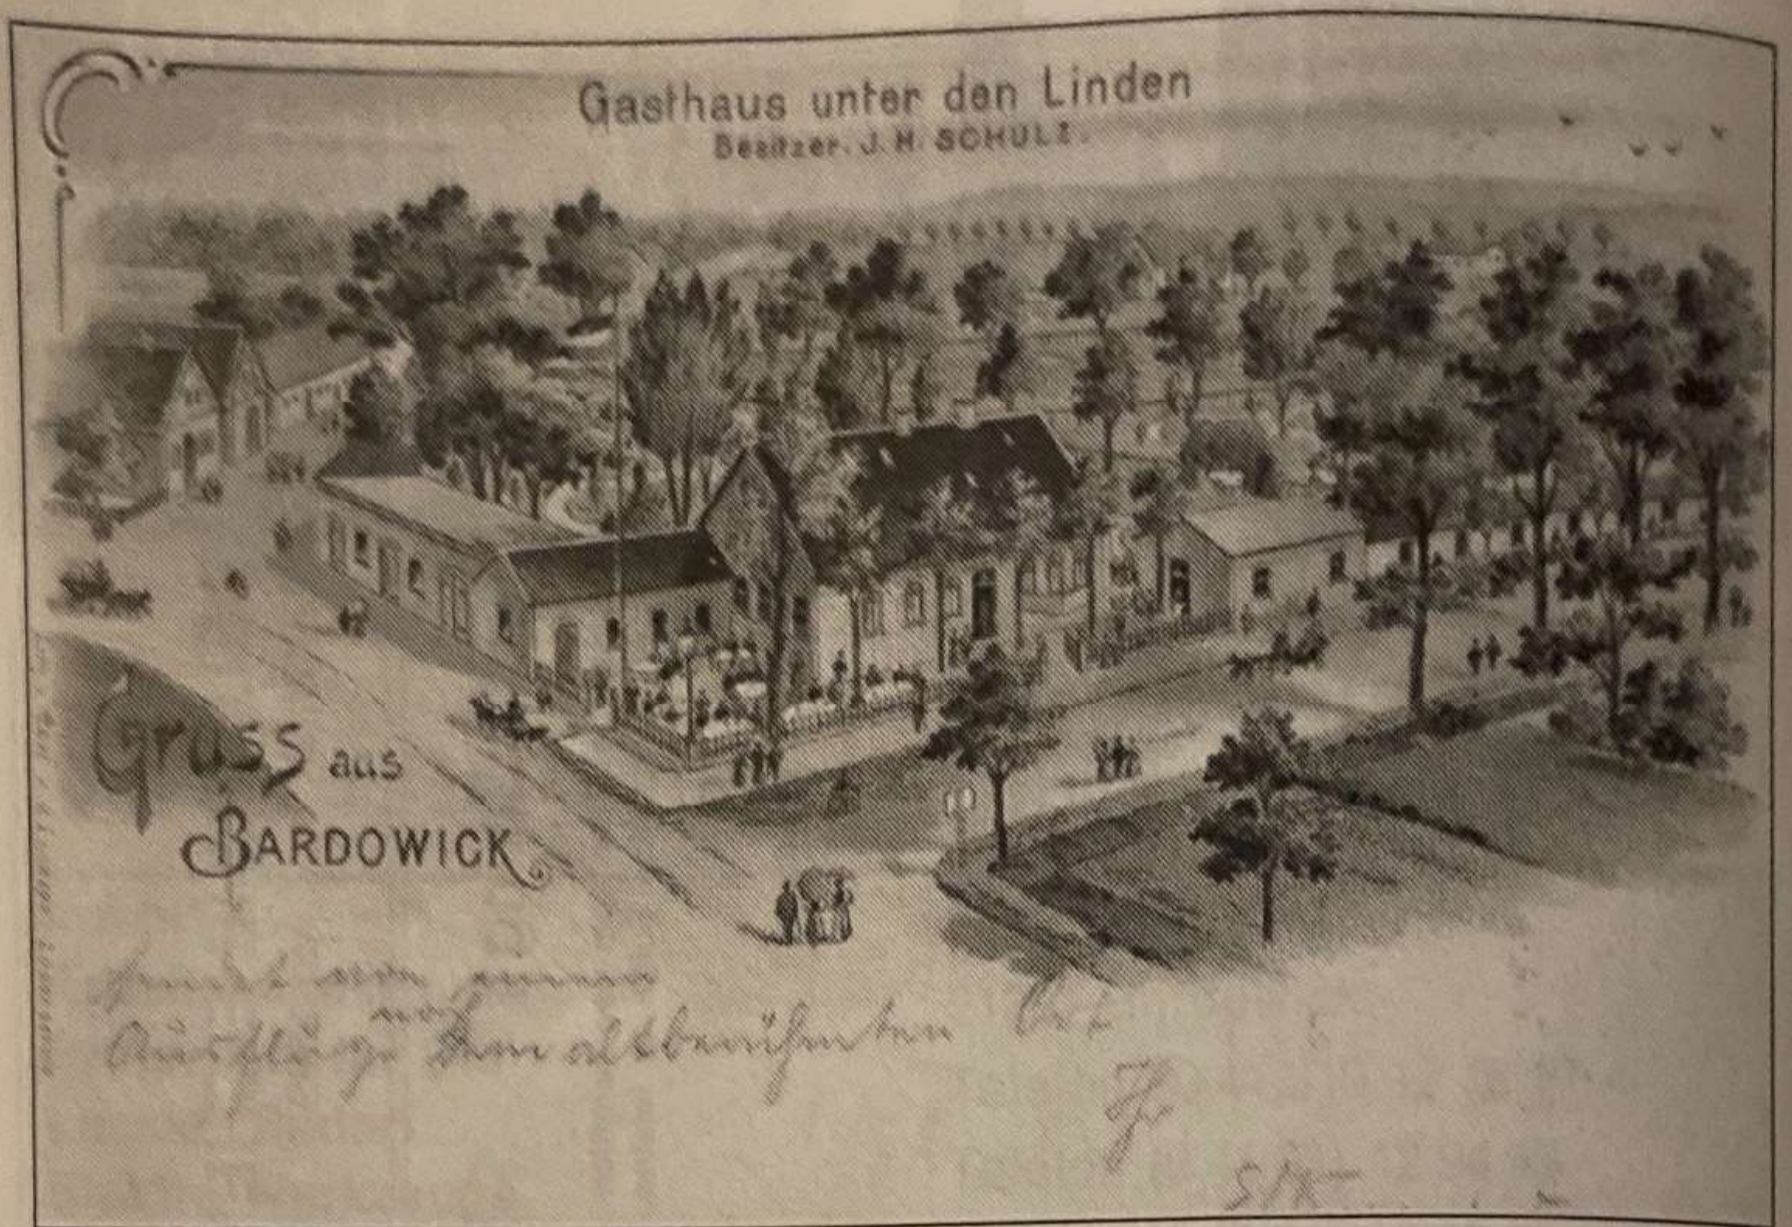 Gasthaus unter den Linden
Besitzer. J. H. SCHULZ.
Gruss aus
BARDOWICK
sendet von einem
Ausfluge nach dem altberühmten Ort
Ihr